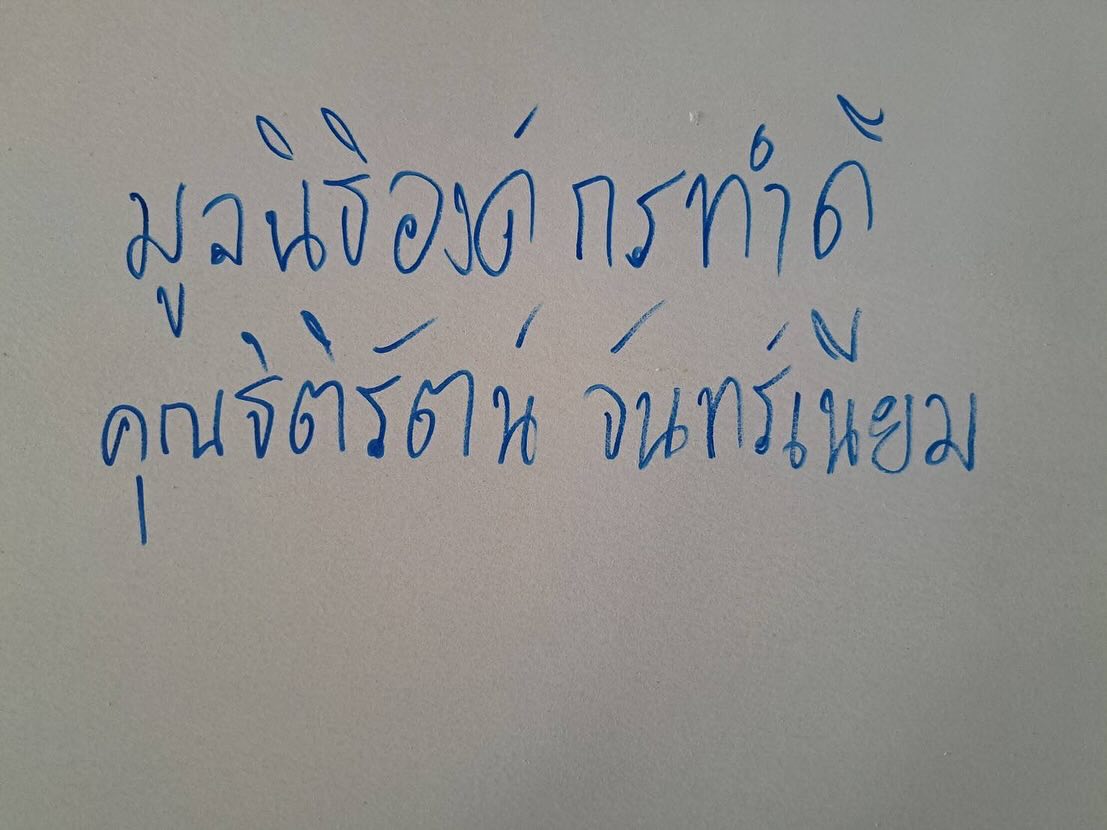 มูลนิธิองค์กรทำดี
คุณธิติรัตน์ จันทร์เนียม